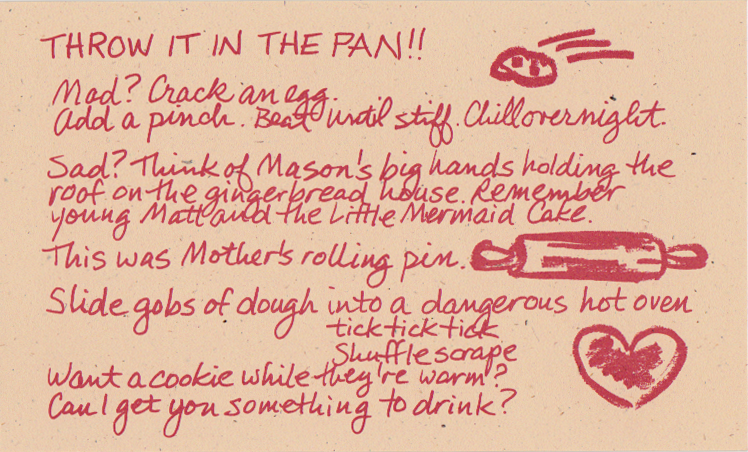 THROW IT IN THE PAN!!
Mad? Crack an egg.
Add a pinch. Beat until stiff. Chill overnight.
Sad? Think of Mason's big hands holding the
roof on the gingerbread house. Remember
young Matt and the Little Mermaid Cake.
This was Mother's rolling pin.
Slide gobs of dough into a dangerous hot oven
tick tick tick
Shuffle scrape
Want a cookie while they're warm?
Can I get you something to drink?